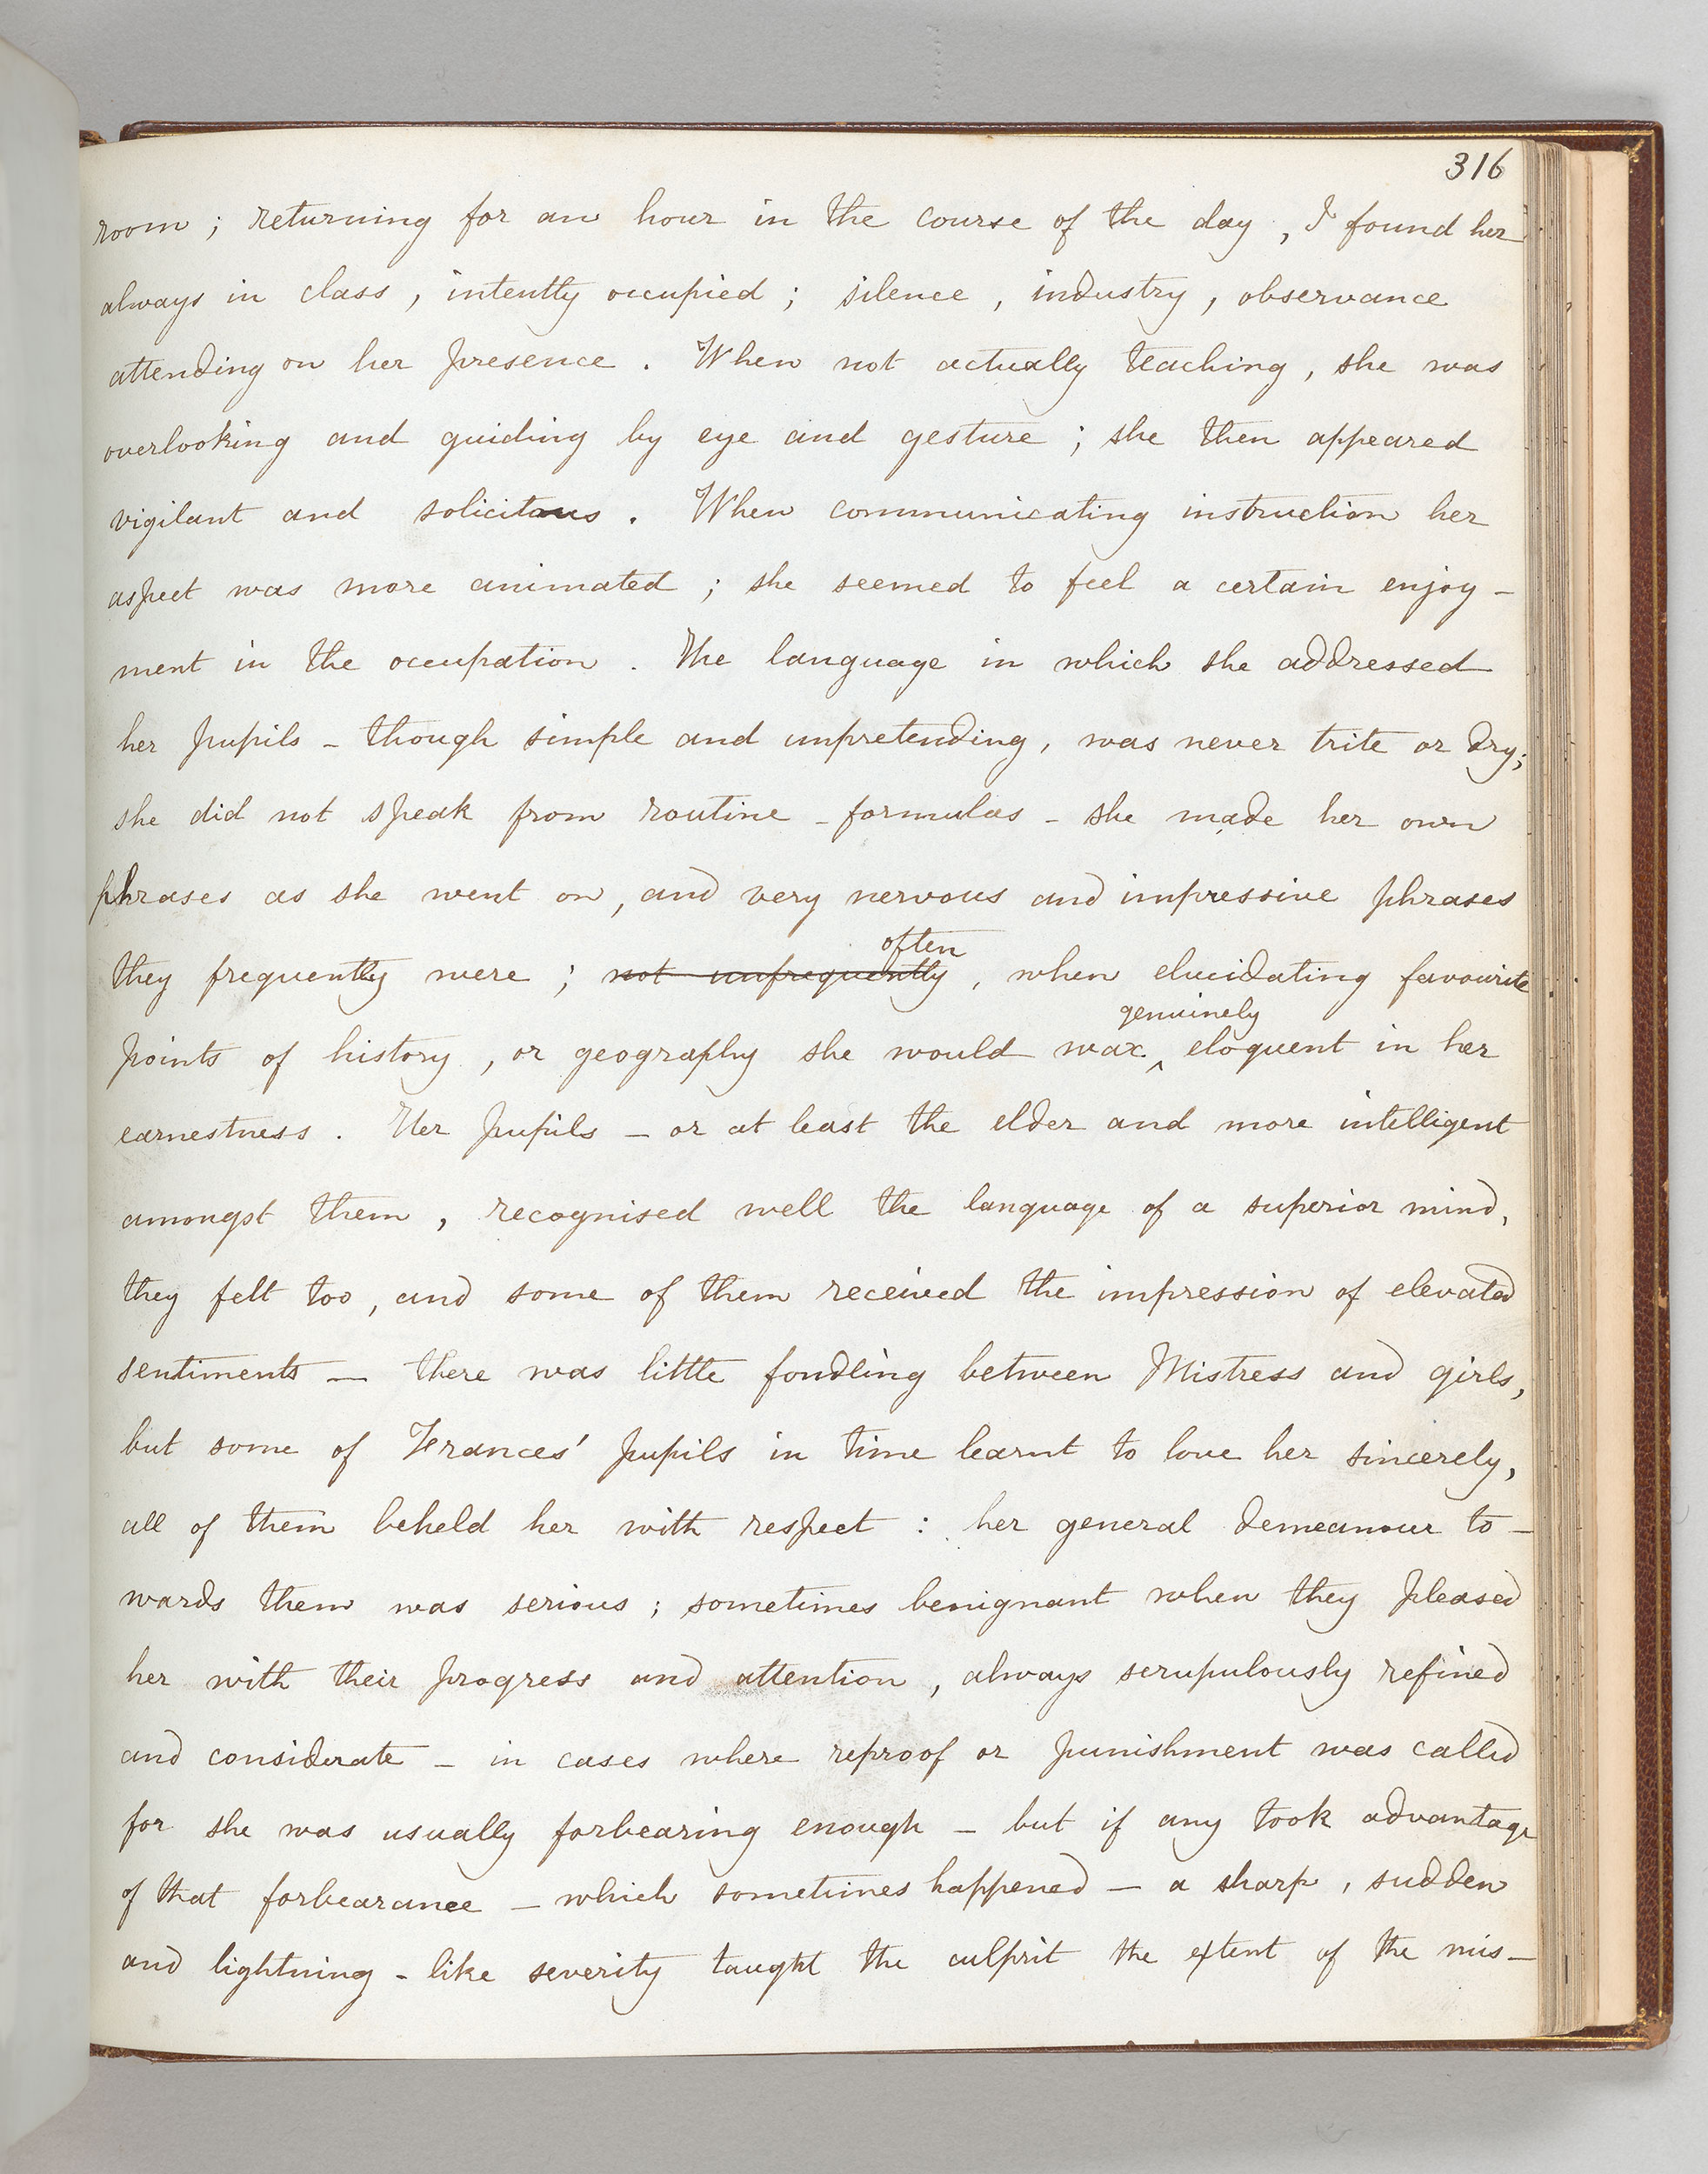 316
room ; returning for an hour in the course of the day , I found her
always in class , intently occupied ; silence , industry , observance
attending on her presence . When not actually teaching , she was
overlooking and guiding by eye and gesture ; she then appeared
vigilant and solicitous . When communicating instruction her
aspect was more animated ; she seemed to feel a certain enjoy -
ment in the occupation . The language in which she addressed
her pupils - though simple and unpretending , was never trite or dry ;
she did not speak from routine - formulas - she made her own
phrases as she went on , and very nervous and impressive phrases
often
they frequently were ; not unfrequently , when elucidating favourite
genuinely
points of history , or geography she would wax ^ eloquent in her
earnestness . Her pupils - or at least the elder and more intelligent
amongst them , recognised well the language of a superior mind ,
they felt too , and some of them received the impression of elevated
sentiments — there was little fondling between Mistress and girls ,
but some of Frances' pupils in time learnt to love her sincerely ,
all of them beheld her with respect : her general demeanour to -
wards them was serious ; sometimes benignant when they pleased
her with their progress and attention , always scrupulously refined
and considerate - in cases where reproof or punishment was called
for she was usually forbearing enough - but if any took advantage
of that forbearance - which sometimes happened - a sharp , sudden
and lightning - like severity taught the culprit the extent of the mis -